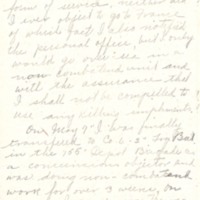 form of service, neither did
I ever object to go to France
of which fact I also notified
the personal office, but only
would go over sea in
non combatant unit and
with the assurance that
I shall not be compelled to
use any killing implements.
On May 9th I was finally
transfered to Co. L. 2" Inf Bat
in the 155" Depot Brigade as
a conscientious objector and
was doing non combatant
work for over 3 weeks, on